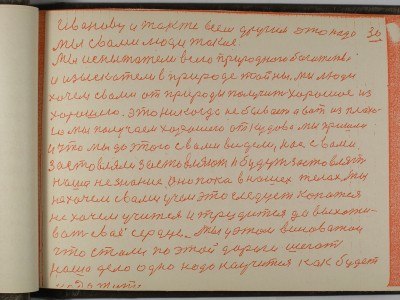 Иванову и также всем другим это надо 36
мы с вами люди такие.
Мы испытатели всего природного богатства
и изыскатели в природе тайны. Мы люди
хочем с вами от природы получить хорошое из
хорошего. Это никогда не бывает а вот из плохо-
го мы получаем хорошего откудово мы пришли
и что мы до этого с вами видели, нас с вами
заставляли заставляют и будут заставлять
наше незнание. Оно пока в наших телах. Мы
не хочем с вами учем это следует копатся
не хочем учится и трудится до выхажи-
вать свае сердце. Мы у этом виноваты
что стали по этой дороги шегать
наше дело одно надо научится как будет
надо жить